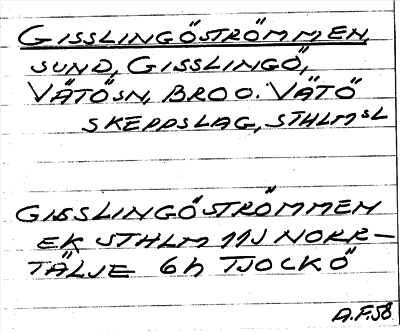 GISSLINGÖSTRÖMMEN
SUND, GISSLINGÖ,
VÄTÖSN, BRO O. VÄTÖ
SKEPPSLAG, STHLMSL
GISSLINGÖSTRÖMMEN
EK STHLM 11J NORR-
TÄLJE 6h TJOCKÖ
A.F.58